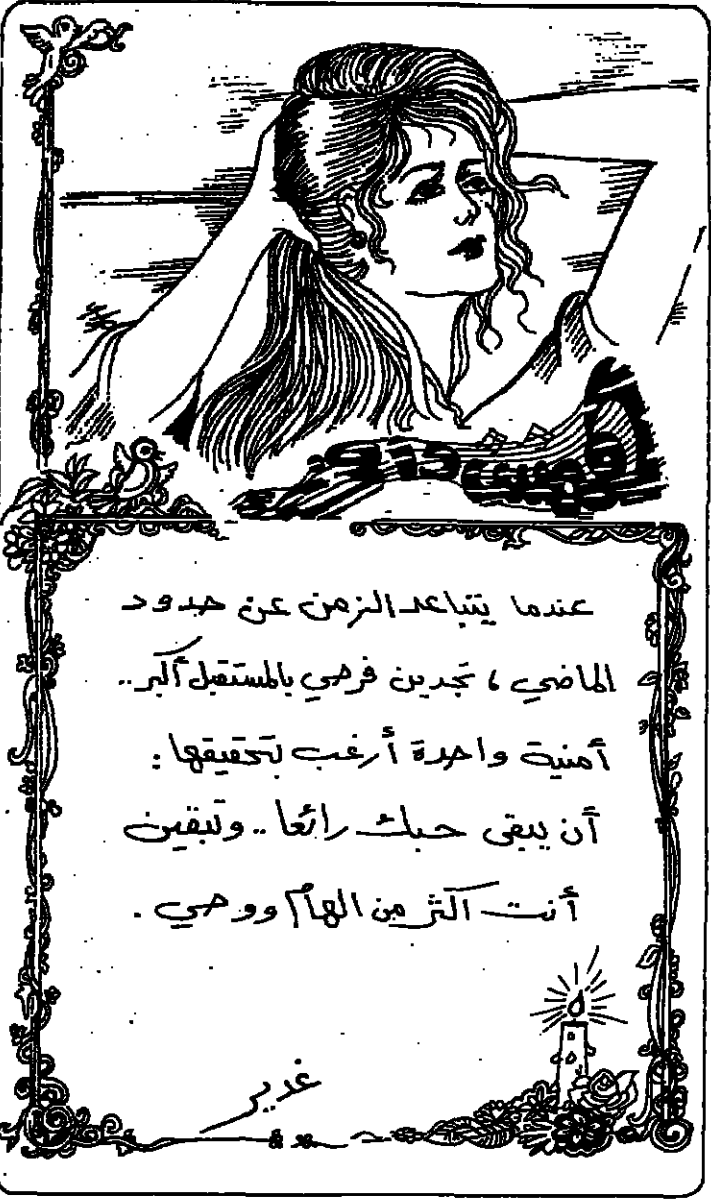 عندما يتباعد الزمن عن حدود
الماضي ، تجدين فرحي بالمستقبل أكبر..
أمنية واحدة أرغب بتحقيقها :
أن يبقى حبك رائعا .. وتبقين
أنت اكثر من الهام ووحي .
غدير